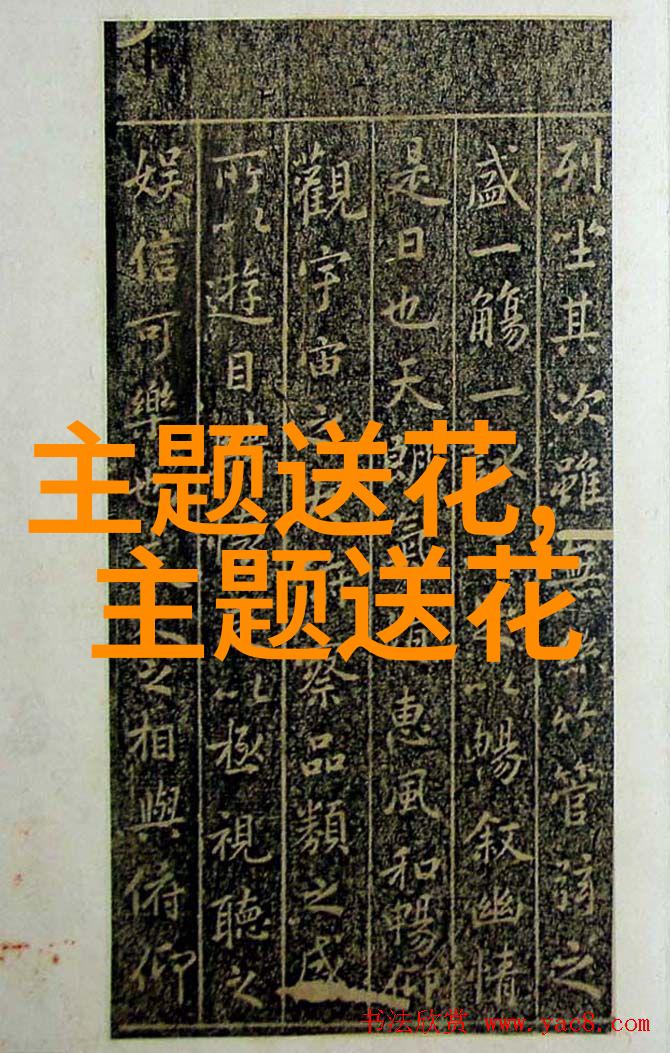 列坐其次雖無絲竹管弦之
盛一觴一以暢叙幽情
是日也天朗惠風和暢仰
觀宇宙之察品類之盛
所以遊目以極視聽之
娱信可樂也之相與俯仰
主题送花,
主题送花
书法欣赏 www.yac8.com